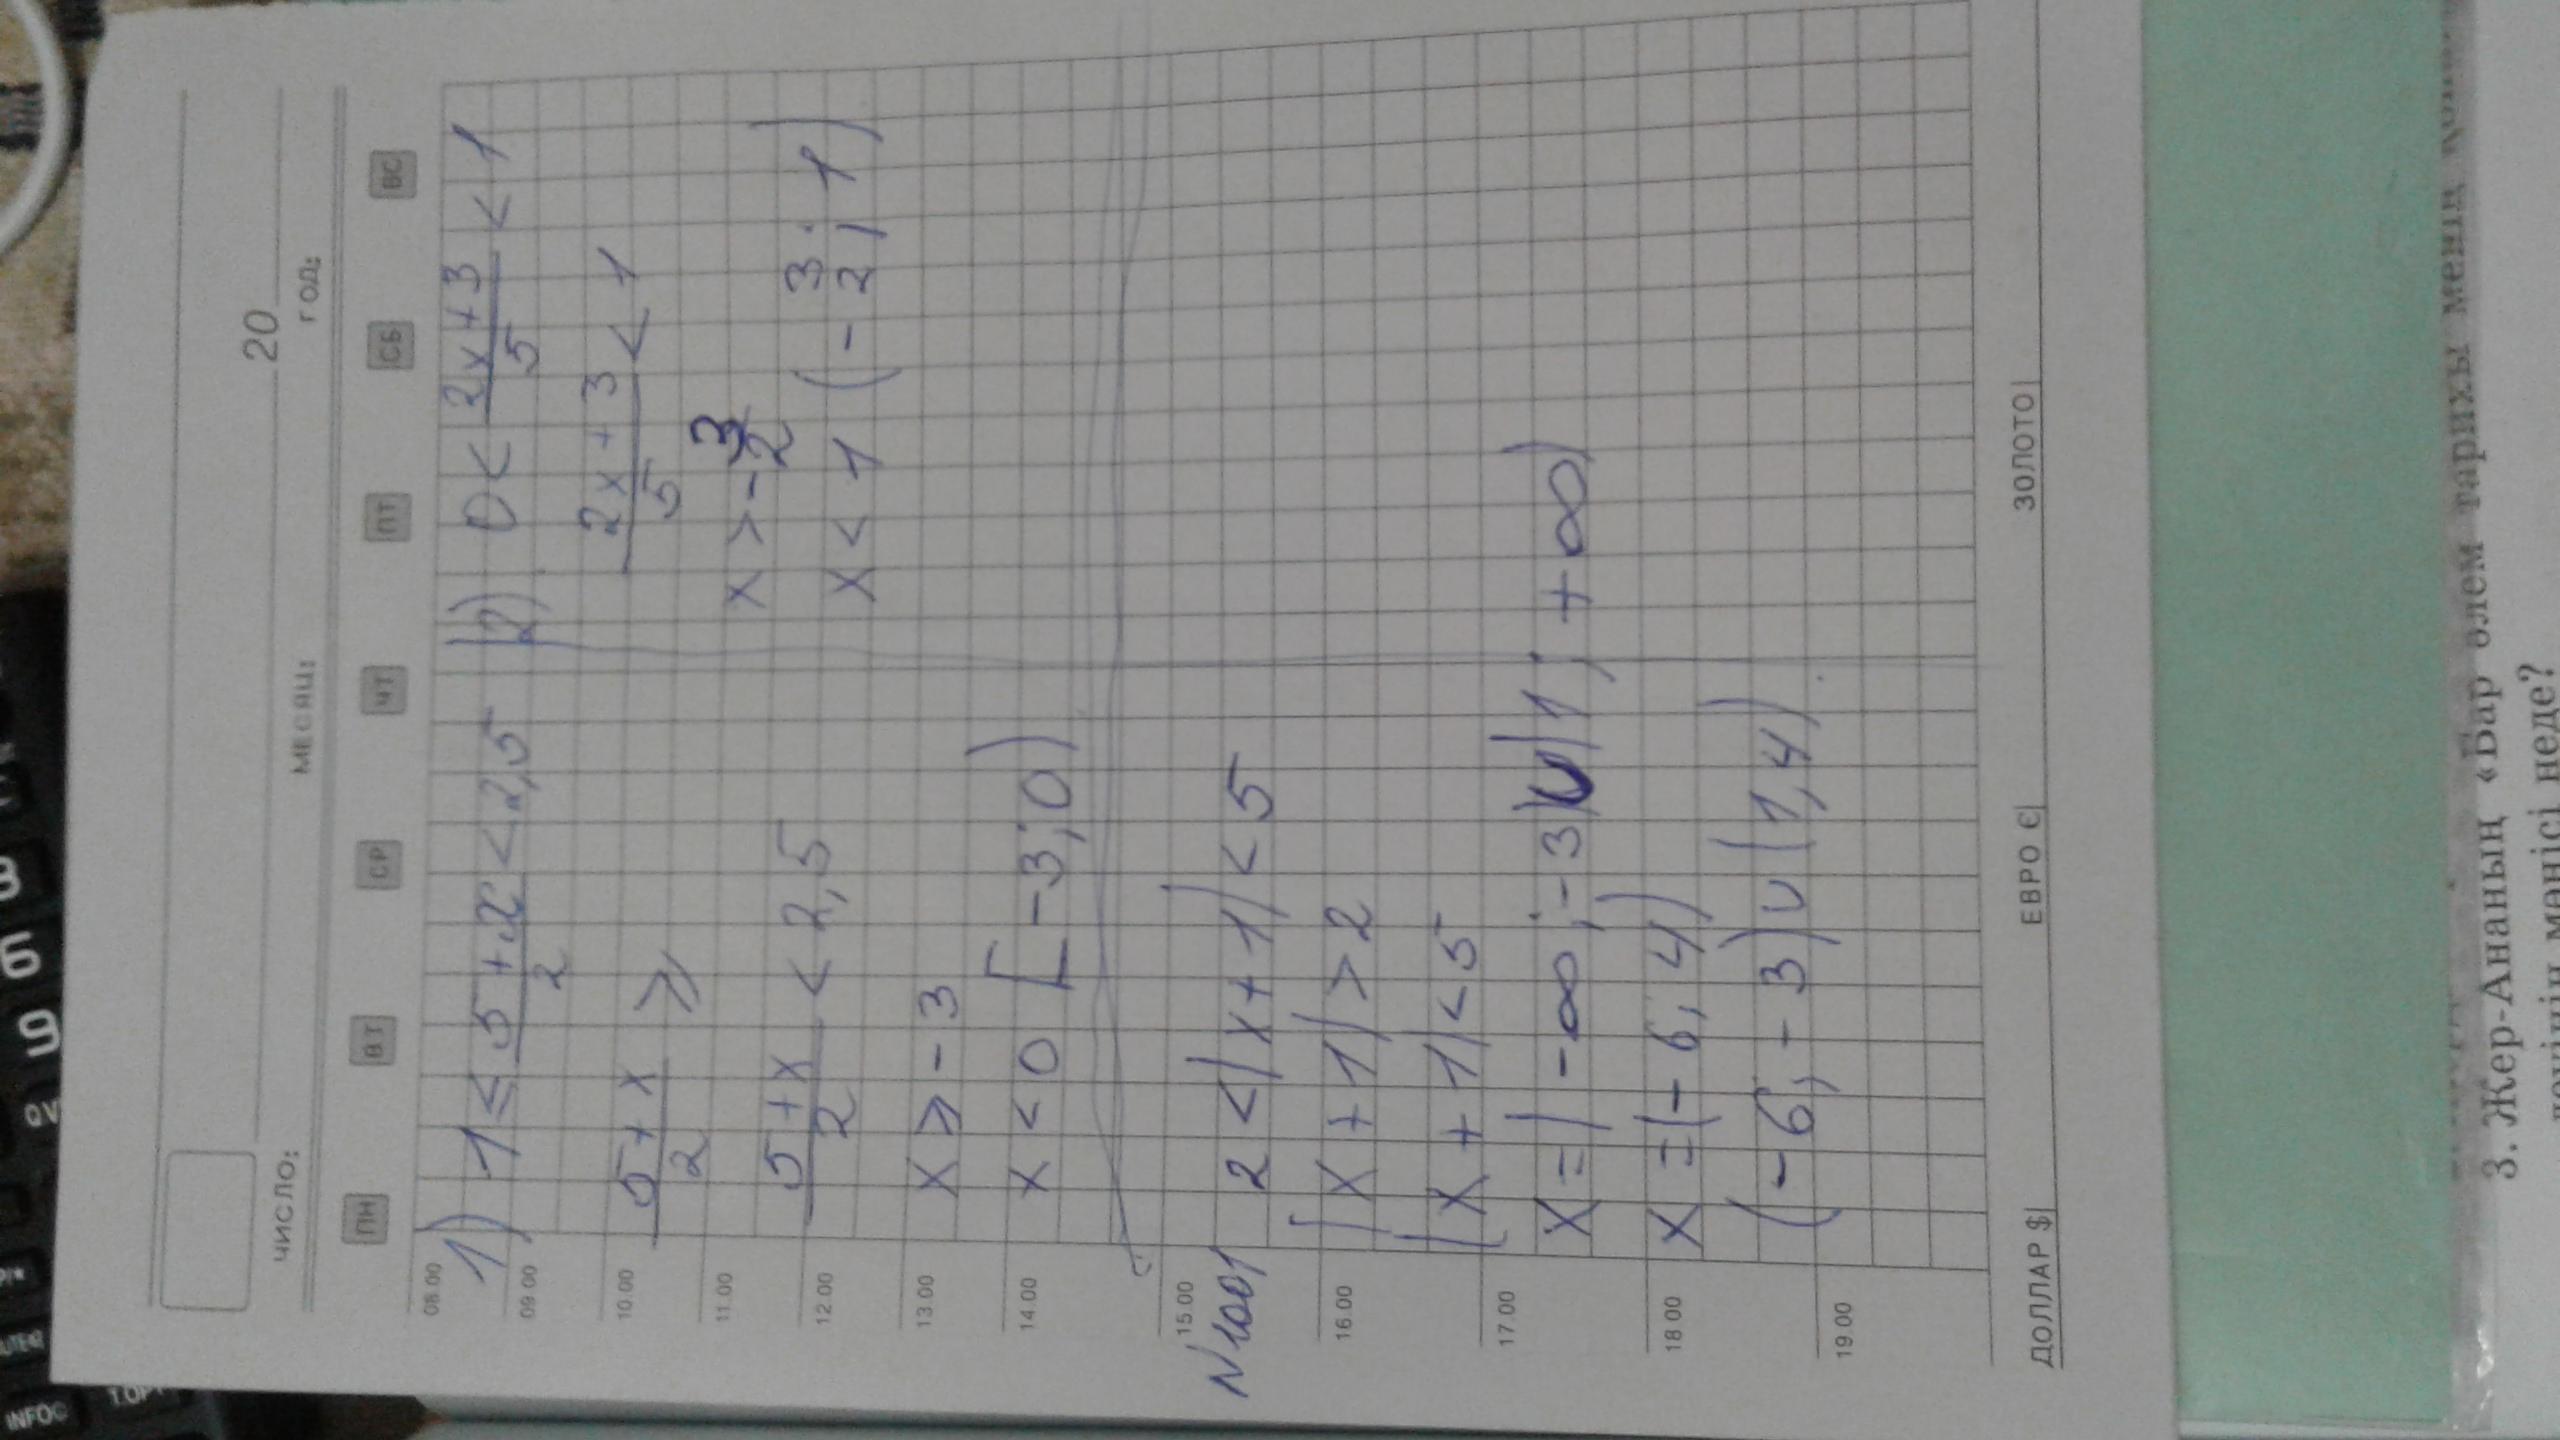 20
ЧИСЛО: МЕСЯЦ: ГОД:
ПН ВТ СР ЧТ ПТ СБ ВС
08.00
09.00
10.00
11.00
12.00
13.00
14.00
15.00
16.00
17.00
18.00
19.00
1) 1 ≤ (5+x)/2 < 2,5
(5+x)/2 ≥
(5+x)/2 < 2,5
x ≥ -3
x < 0 [-3; 0)
2) 0 < (2x+3)/5 < 1
(2x+3)/5 < 1
x > -3/2
x < 1 (-3/2; 1)
N1001 2 < |x+1| < 5
[x+1| > 2
[x+1| < 5
x = | -∞; -3) ∪ |1; +∞)
x = (-6; 4)
(-6; -3) ∪ (1, 4)
ДОЛЛАР $| ЕВРО €| ЗОЛОТО|
3. Жер-Ананың «Бар әлем тарихы менің
мәнісі неде?
3
6
9
QV
INFO